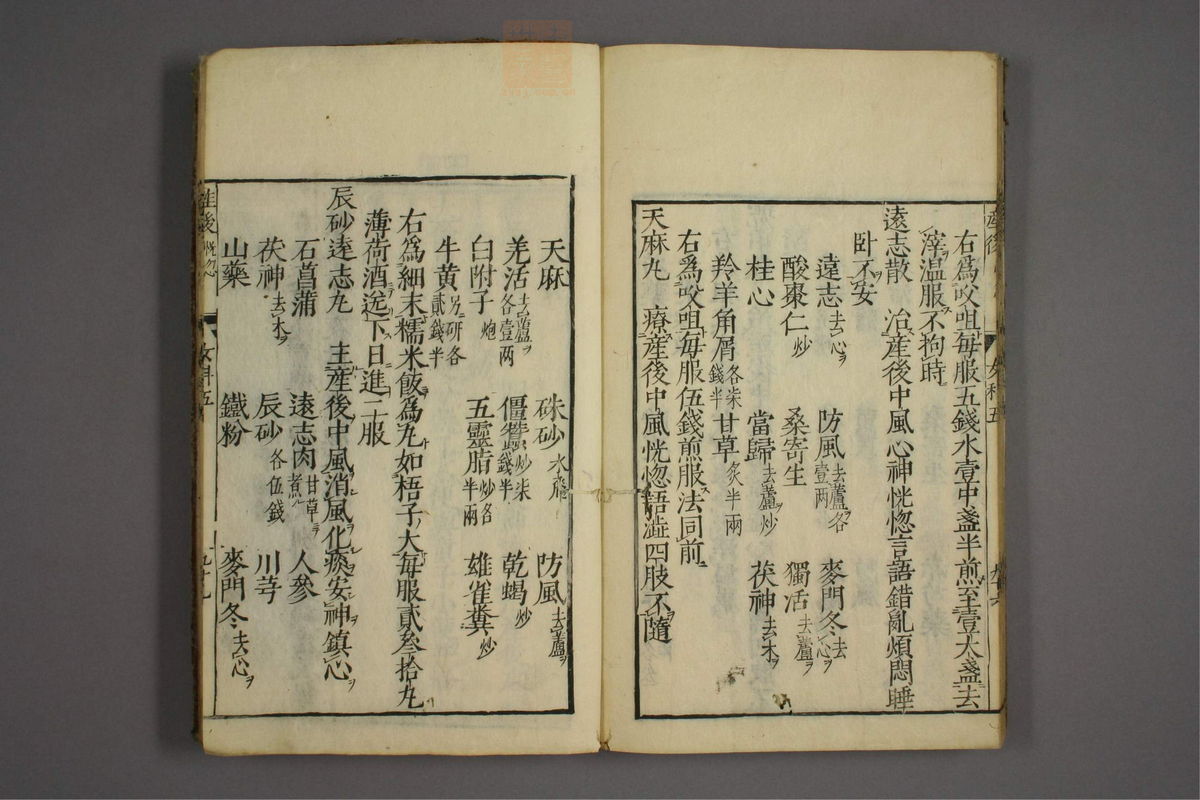 右爲㕮咀毎服五錢水壹中盞半煎至壹大盞去
滓温服不拘時
遠志散　治産後中風心神恍惚言語錯亂煩悶睡
卧不安
遠志去心ヲ　防風去蘆ヲ各壹両　麥門冬去心ヲ
酸棗仁炒　桑寄生　獨活去蘆ヲ
桂心　當歸去蘆ヲ炒　茯神去木ヲ
羚羊角屑各柒錢半　甘草炙半兩
右爲㕮咀毎服伍錢煎服法同前
天麻丸　療産後中風恍惚語澁四肢不隨
天麻　硃砂水飛　防風去蘆ヲ
羗活去蘆ヲ各壹两　僵蠶炒柒錢半　乾蝎炒
白附子炮　五靈脂炒各半兩　雄雀糞炒
牛黄另研各貳錢半
右爲細末糯米飯爲丸如梧子大毎服貳叁拾丸
薄荷酒送下日進二服
辰砂遠志丸　主産後中風消風化痰安神鎮心ヲ
石菖蒲　遠志肉甘草ヲ煮　人參
茯神去木ヲ　辰砂各伍錢　川芎
山藥　鐵粉　麥門冬去心ヲ